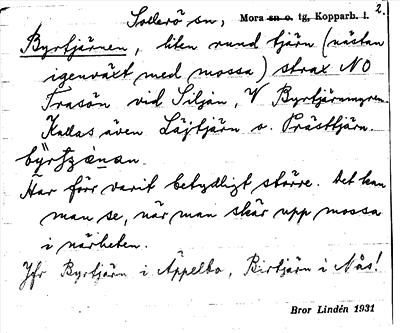 Sollerö sn, Mora sn o. tg, Kopparb. l. 2.
Byrtjärnen, liten rund tjärn (nästan
igenväxt med mossa) strax NO
Frasön vid Siljan, V Byrtjärnmyren.
Kallas även Löjtjärn o. Prästtjärn.
Har förr varit betydligt större. Det kan
man se, när man skär upp mossa
i närheten.
Jfr Byrtjärn i Äppelbo, Birtjärn i Nås!
Bror Lindén 1931